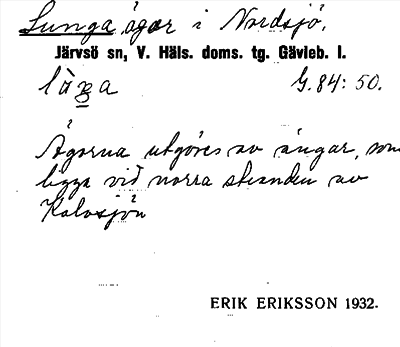 Lunga, ägor i Nordsjö,
Järvsö sn, V. Häls. doms. tg. Gävleb. l.
G. 84: 50.
Ägorna utgöres av ängar, som
ligga vid norra stranden av
Kalvsjön
ERIK ERIKSSON 1932.